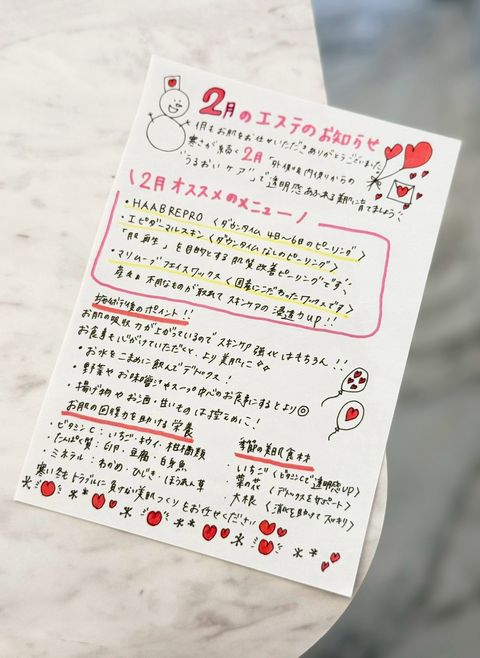 2月のエステのお知らせ
1月もお肌をお任せいただきありがとうございました
寒さが続く2月「外側&内側からの
"うるおいケア"」で透明感あふれる美肌に育てましょう!
\2月オススメのメニュー/
・HAABREPRO〈ダウンタイム4日〜6日のピーリング〉
・エピダーマルスキン〈ダウンタイムなしのピーリング〉
「肌再生」を目的とする肌質改善ピーリングです
・マリムーブフェイスワックス〈国産にこだわったワックスです〉
産毛&不用なものが取れてスキンケアの浸透力up!!
施術後のポイント!!
お肌の吸収力が上がっているのでスキンケア強化はもちろん!!
お食事も心がけていただくと、より美肌に
・お水をこまめに飲んでデトックス!
・野菜やお味噌汁やスープ中心のお食事にするとより◎
・揚げ物やお酒・甘いものは控えめに!
お肌の回復力を助ける栄養
・ビタミンC:いちご・キウイ・柑橘類
・たんぱく質:卵・豆腐・白身魚
・ミネラル:わかめ・ひじき・ほうれん草
季節の美肌食材
・いちご〈ビタミンCで透明感UP〉
・菜の花〈デトックスをサポート〉
・大根〈消化を助けてスッキリ〉
寒い冬もトラブルに負けない美肌づくりをお任せください